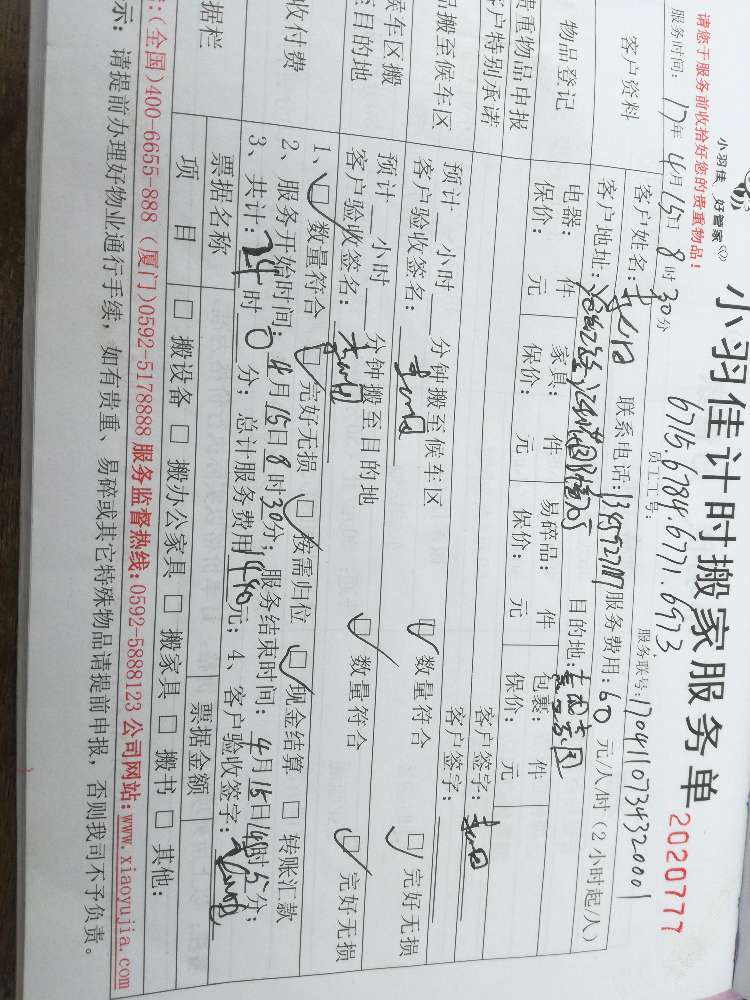 小羽佳 好管家
小羽佳计时搬家服务单
2020777
请您于服务前收拾好您的贵重物品!
员工工号: 6715.6784.6771.6973
服务时间: 17年4月15日8时30分
服务联号: 1704110734320001
客户资料
客户姓名:
联系电话:
服务费用: 60 元/人/时 (2小时起/人)
客户地址:
目的地:
物品登记
电器: 件
家具: 件
易碎品: 件
包裹: 件
保价: 元
保价: 元
保价: 元
保价: 元
贵重物品申报
客户签字:
客户特别承诺
客户签字:
品搬至候车区
预计__小时__分钟搬至候车区
客户验收签名:
□数量符合
□完好无损
候车区搬
至目的地
预计__小时__分钟搬至目的地
客户验收签名:
□数量符合
□完好无损
收付费
1、□数量符合 □完好无损 □按需归位 □现金结算 □转账汇款
2、服务开始时间: 4月15日8时30分; 服务结束时间: 4月15日14时5分;
3、共计: 24时0分; 总计服务费用1440元; 4、客户验收签字:
据栏
票据名称
票据金额
项 目
□搬设备 □搬办公家具 □搬家具 □搬书 □其他:
:(全国)400-6655-888 (厦门)0592-5178888 服务监督热线:0592-5888123 公司网站:www.xiaoyujia.com
示: 请提前办理好物业通行手续, 如有贵重、易碎或其它特殊物品请提前申报, 否则我司不予负责。